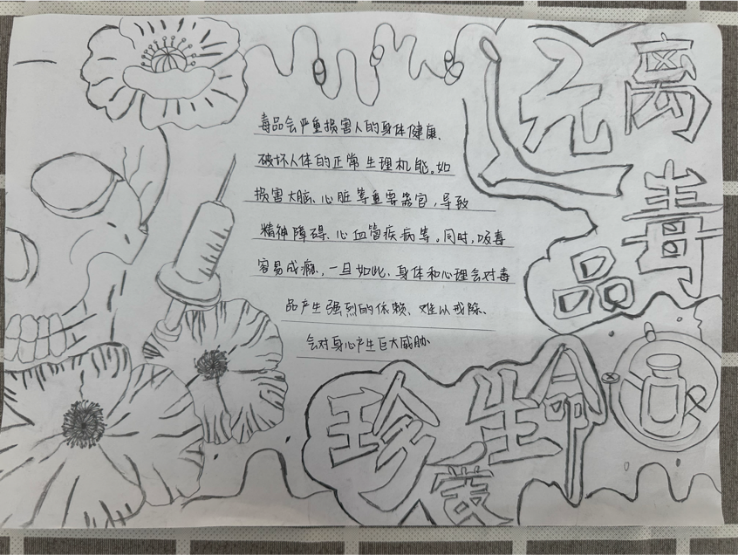 远离
毒
品
毒品会严重损害人的身体健康.
破坏人体的正常生理机能。如
损害大脑、心脏等重要器官，导致
精神障碍、心血管疾病等。同时，吸毒
容易成瘾，一旦如此、身体和心理会对毒
品产生强烈的依赖、难以戒除.
会对身心产生巨大威胁.
珍爱生命